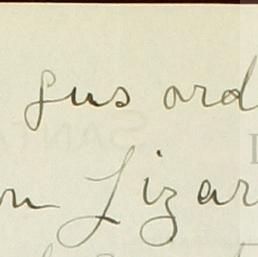 gus ord
on Lizar